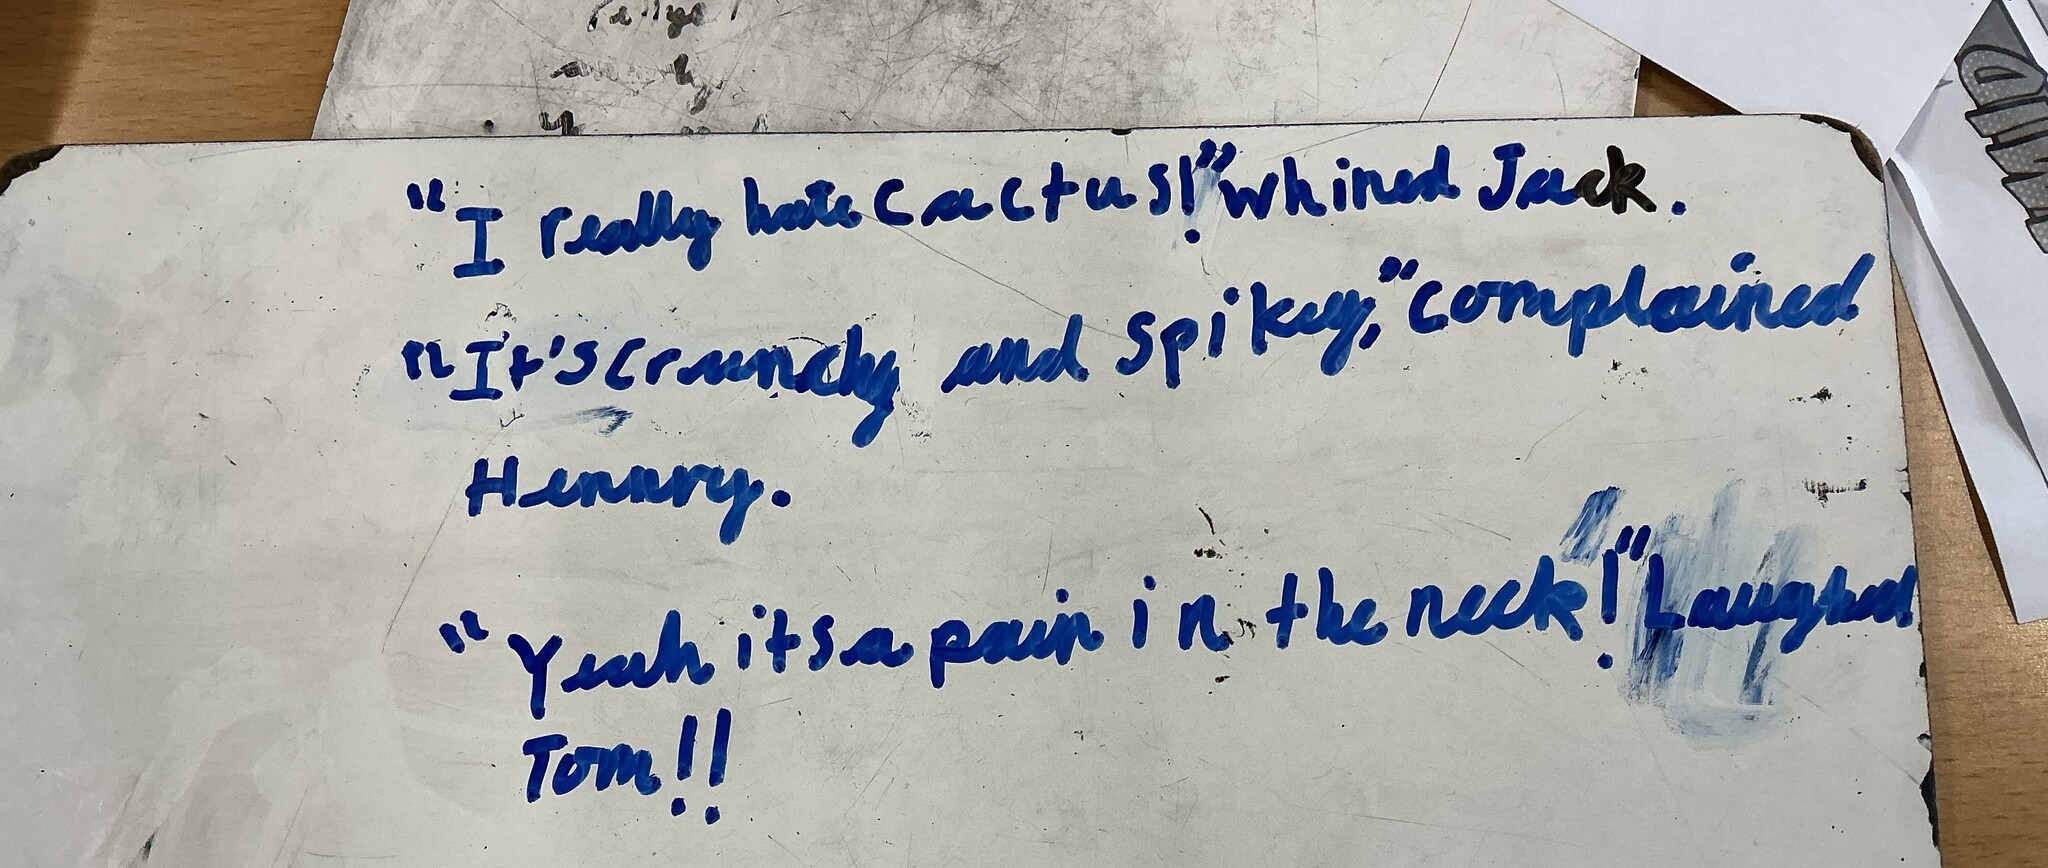 "I really hate cactus!" whined Jack.
"It's crunchy and spikey," complained
Hennry.
"Yeah its a pain in the neck!" Laughed
Tom!!